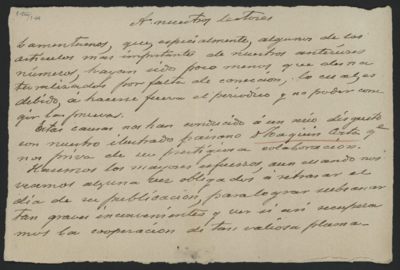 A nuestros lectores
Lamentamos, que, especialmente, algunos de los
articulos mas importante de nuestros anteriores
números, hayan sido poco menos, que desna-
turalizados por falta de correccion, lo cual es
debido, a hacerse fuera el periodico y no poder corre-
gir las pruevas.
Estas causas nos han conducido á un mio disgusto
con nuestro ilustrado paisano D. Joaquin Costa qe
nos priva de su prestigiosa colaboracion.
Hacemos los mayores esfuerzos aun cuando nos
veamos alguna vez obligados á retrasar el
dia de su publicacion, para lograr subsanar
tan graves inconvenientes y ver si asi recupera-
mos la cooperacion de tan valiosa pluma.